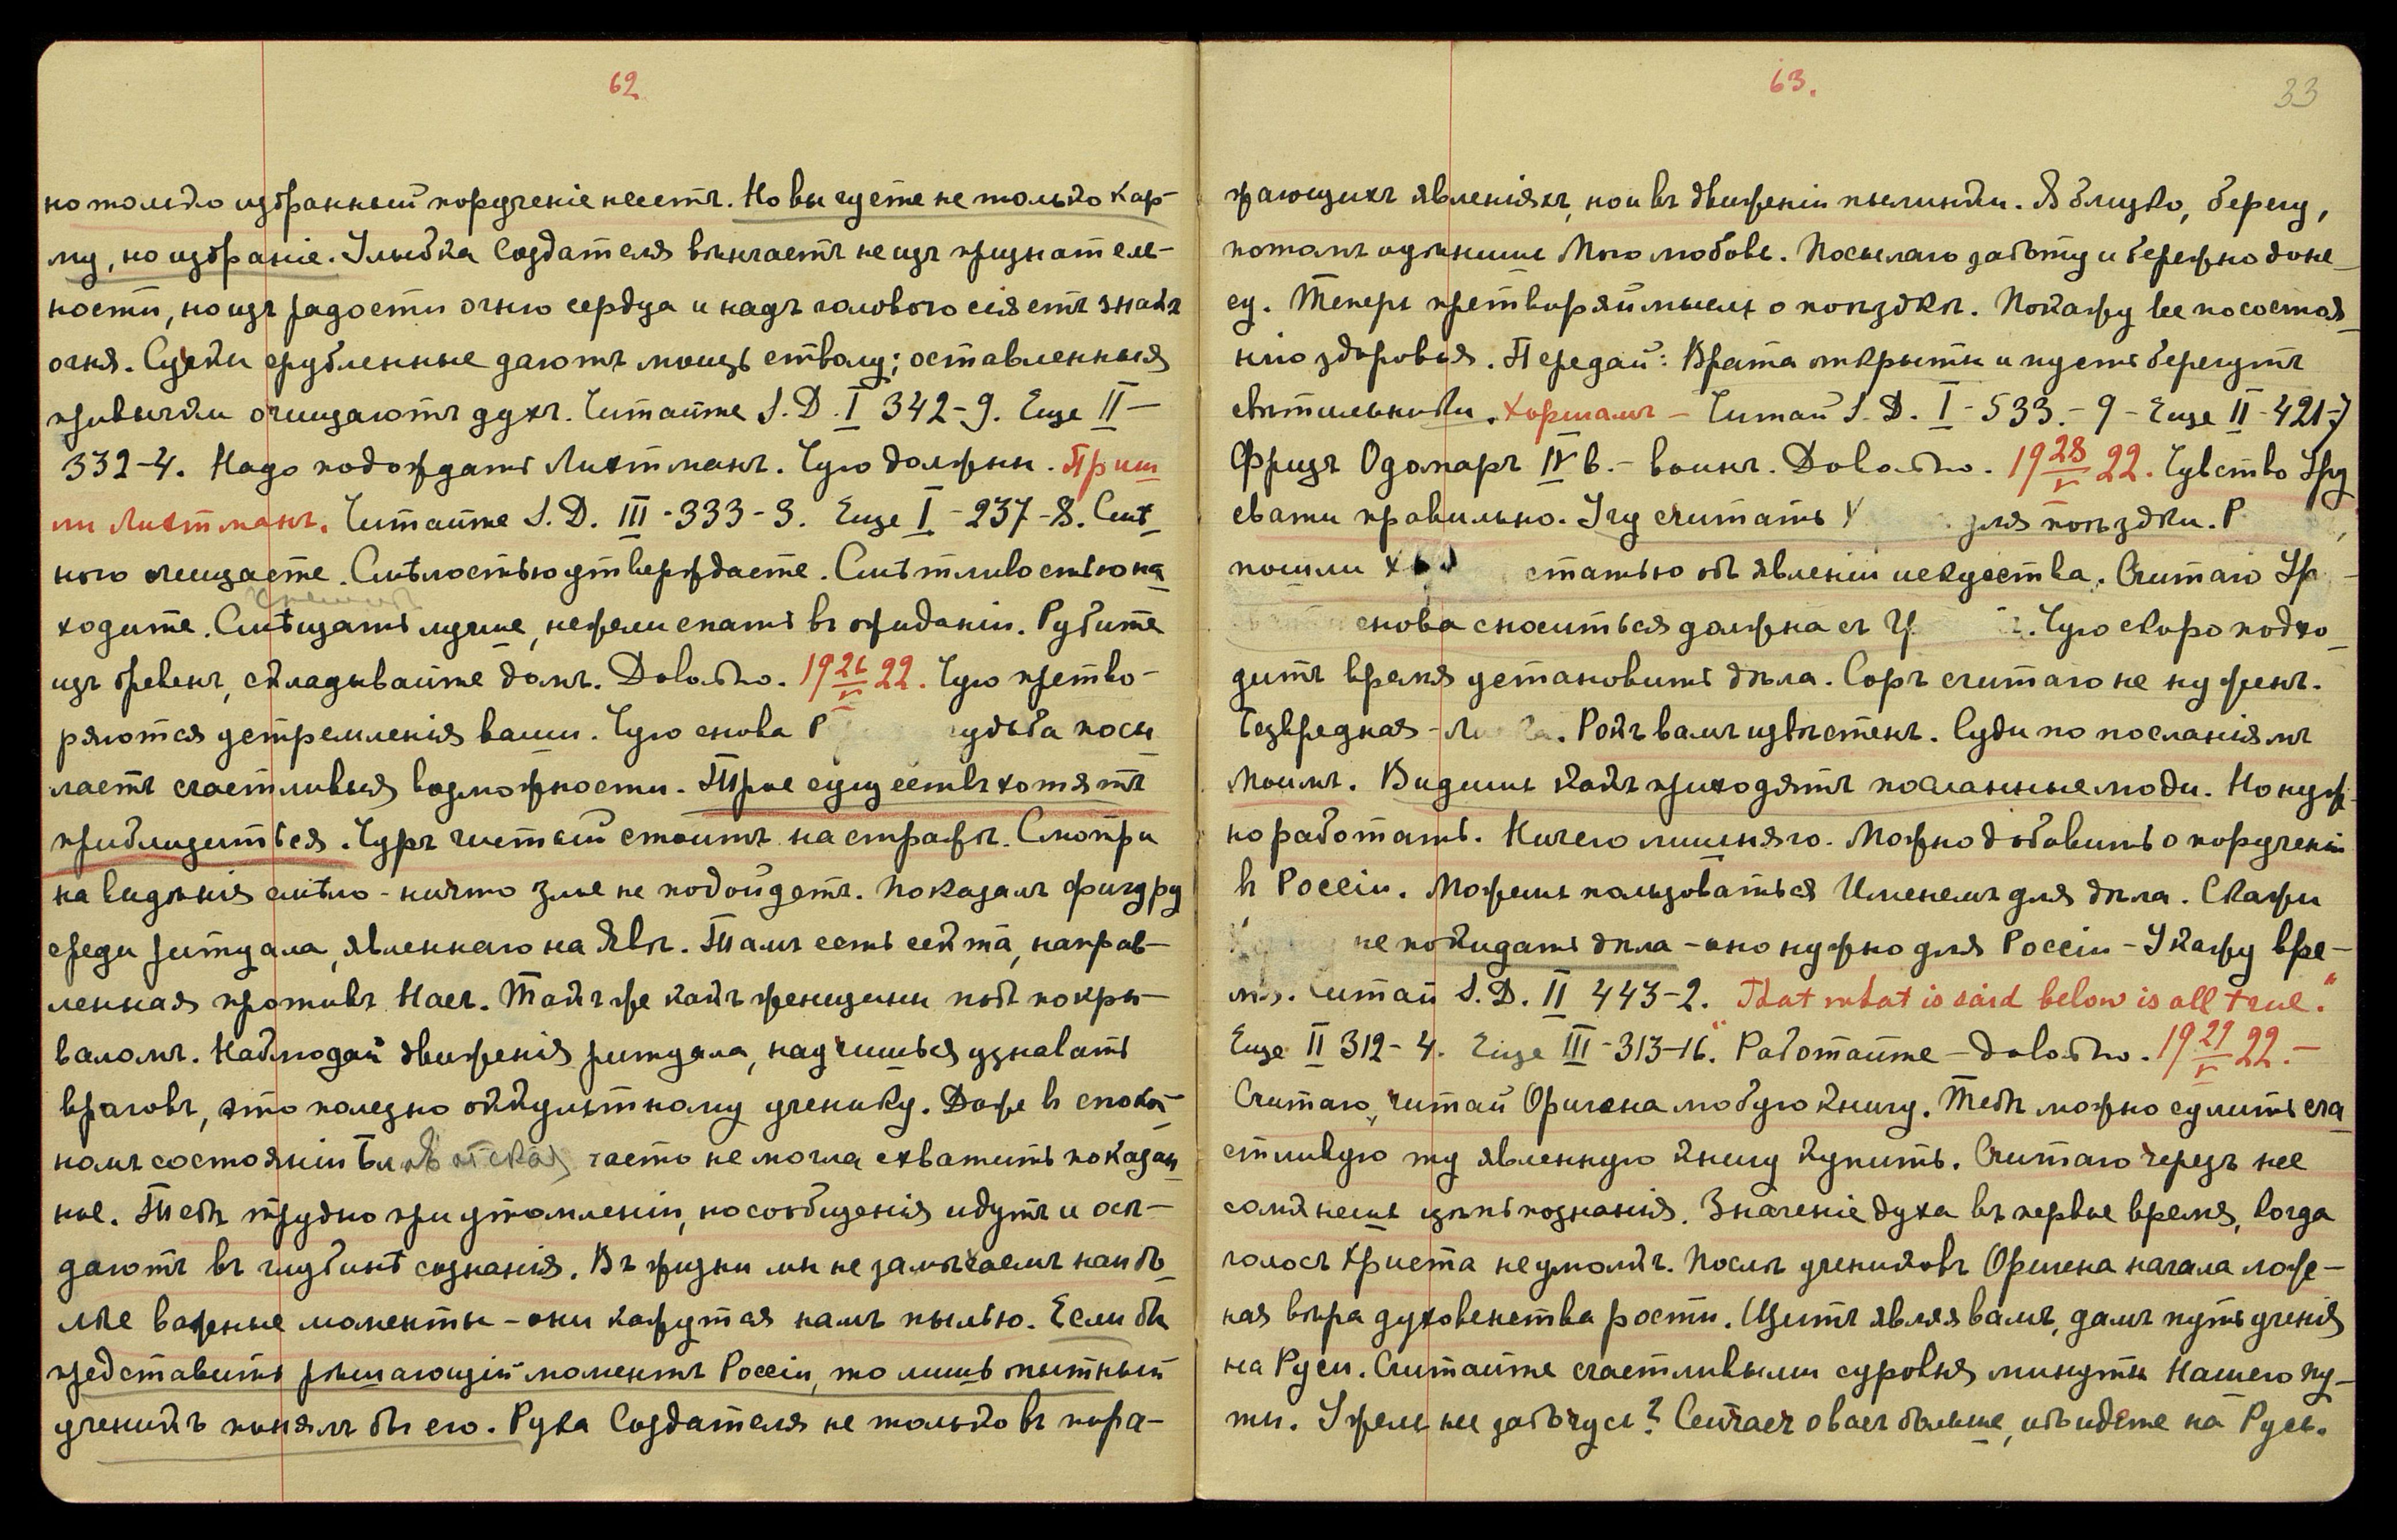 62
но только избранный порученіе несетъ. Но вы чуете не только кар-
му, но избраніе. Улыбка Создателя вѣнчаетъ не изъ признатель-
ности, но изъ радости огню сердца и надъ головою сіяетъ знакъ
огня. Сучки срубленные даютъ мощь стволу; оставленныя
привычки очищаютъ духъ. Читайте S.D. I 342-9. Еще II-
332-4. Надо подождать Лихтманъ. Чую должны. Приш
ли Лихтманъ. Читайте S.D. III-333-3. Еще I-237-8.
очищаете. Смѣлостью утверждаете. Смѣтливостью на
ходите. лучше, нежели спать въ ожиданіи. Рубите
изъ бревенъ, складывайте домъ. Довольно. 22. Чую претво-
ряются устремленія ваши. Чую снова Р удьба посы
лаетъ счастливыя возможности. Трое существъ хотятъ
приблизиться. Чуръ чистый стоитъ на стражѣ. Смотри
на видѣнія смѣло - ничто злое не подойдетъ. Показалъ фигуру
среди ритуала, явленнаго на Явѣ. Тамъ есть секта, направ-
ленная противъ Насъ. Такъ же какъ женщины подъ покры-
валомъ. Наблюдай движенія ритуала, научишься узнавать
враговъ, это полезно оккультному ученику. Даже въ спокой-
номъ состояніи Блаватская часто не могла схватить показан
ное. Тебѣ трудно при утомленіи, но сообщенія идутъ и осѣ-
даютъ въ глубинѣ сознанія. Въ жизни мы не замѣчаемъ наибо
лѣе важные моменты - они кажутся намъ пылью. Если бы
представить рѣшающій моментъ Россіи, то лишь опытный
ученикъ понялъ бы его. Рука Создателя не только въ пора-
63.
33
жающихъ явленіяхъ, но и въ движеніи пылинки. Я близко, берегу,
потомъ оцѣнишь Мою любовь. Посылаю заботу и бережно доне-
су. Теперь претворяй мысль о поѣздкѣ. Покажу ее по состоя
нію здоровья. Передай: Врата открыты и пусть берегутъ
свѣтильники. Хоршамъ - Читай S.D. I-533.-9- Еще II-421-7
Фрицъ Одомаръ IV в. - воинъ. Довольно. 19 28/V 22. Чувство Уру
свати правильно. Учу считать У для поѣздки. Р
пошли статью объ явленіи искусства. Считаю Ур -
снова сноситься должна съ Ч . Чую скоро подхо
дитъ время установить дѣла. Соръ считаю не нуженъ.
Безвредная - . Рокъ вамъ извѣстенъ. Суди по посланіямъ
Моимъ. Видишь какъ приходятъ посланные люди. Но нуж
но работать. Ничего лишняго. Можно добавить о порученіи
въ Россіи. Можешь пользоваться Именемъ для дѣла. Скажи
не покидать дѣла - оно нужно для Россіи - Укажу вре-
мя. Читай S.D. II 443-2. That what is said below is all true."
Еще II 312-4. Еще III-313-16." Работайте - довольно. 19 29/V 22.-
Считаю, читай Оригена любую книгу. Тебѣ можно сулить сча
стливую ту явленную книгу купить. Считаю черезъ нее
сомкнешь цѣпь познанія. Значеніе духа въ первое время, когда
голосъ Христа не умолкъ. Послѣ учениковъ Оригена начала лож-
ная вѣра духовенства рости. Щитъ являя вамъ, дамъ путь ученія
на Руси. Считайте счастливыми суровыя минуты Нашего пу-
ти. Ужель не забочусь? Сейчасъ о васъ больше, ибо идете на Русь.